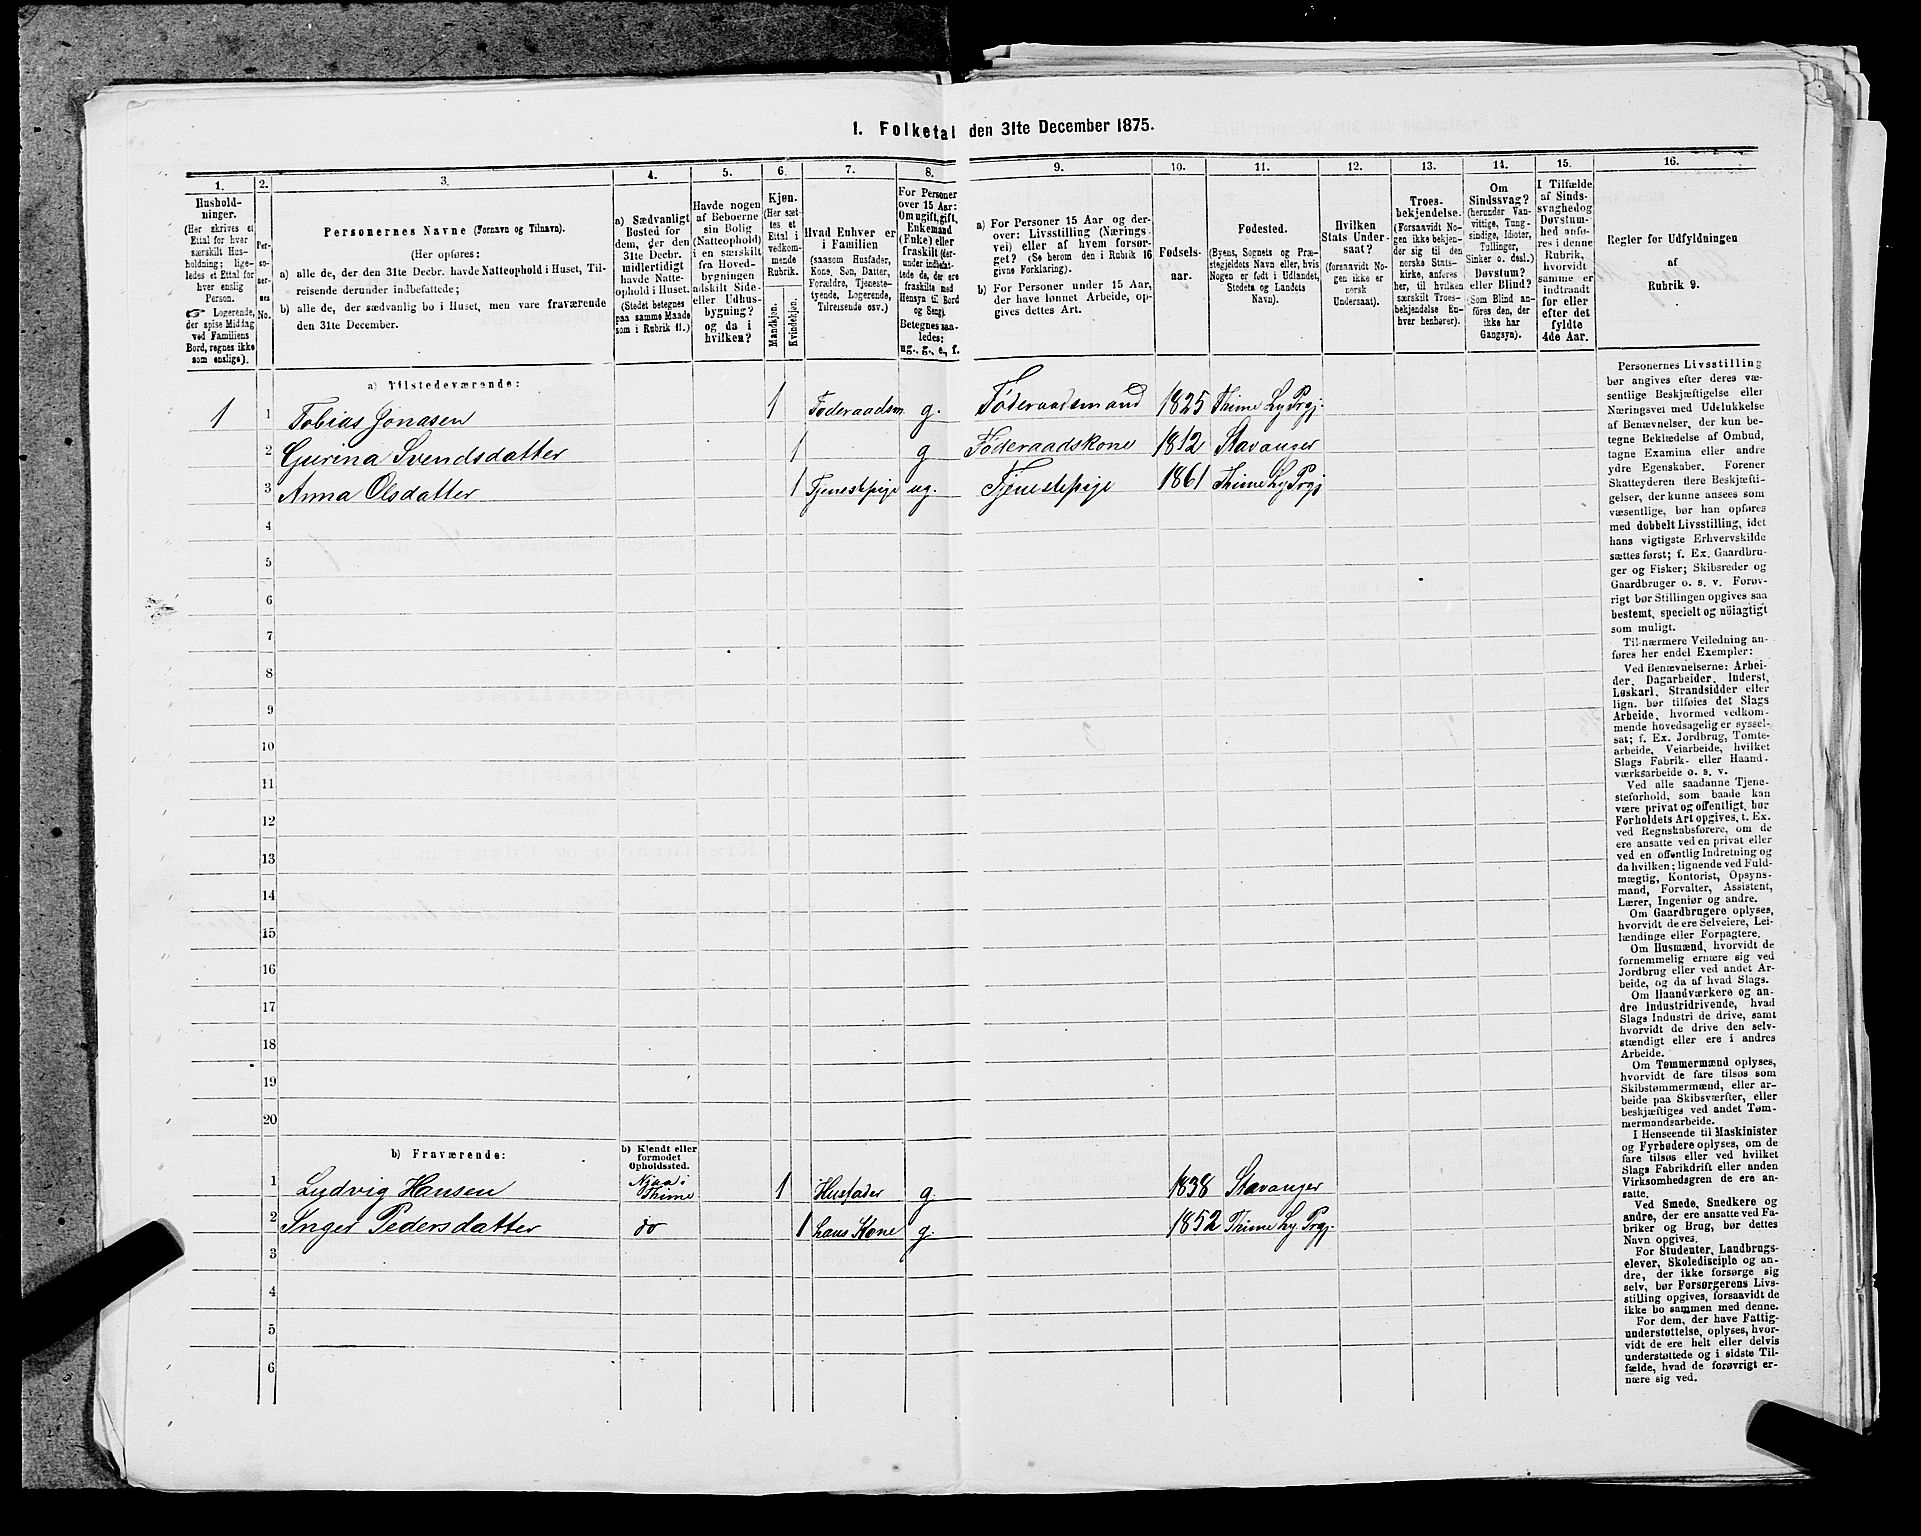 1. Folketal den 31te December 1875.
1. 2. 3. 4. 5. 6. 7. 8. 9. 10. 11. 12. 13. 14. 15. 16.
Husholdninger.
(Her skrives et
Ettal for hver
særskilt Husholdning;
ligeledes et Ettal for
hver enslig
Person.
Logerende,
der spise Middag
ved Familiens
Bord, regnes ikke
som enslige).
Personernes No.
Personernes Navne (Fornavn og Tilnavn).
(Her opføres:
a) alle de, der den 31te Decbr. havde Natteophold i Huset, Tilreisende derunder indbefattede;
b) alle de, der sædvanlig bo i Huset, men vare fraværende
den 31te December.
a) Sædvanligt
Bosted for
dem, der den
31te Decbr.
midlertidigt
havde Natteophold i Huset.
(Stedet betegnes
paa samme Maade
som i Rubrik 11.)
Havde nogen
af Beboerne
sin Bolig
(Natteophold)
i en særskilt
fra Hovedbygningen
adskilt Side-
eller Udhusbygning?
og da i
hvilken?
Kjøn.
(Her sættes et
Ettal i
vedkommende
Rubrik.
Mandkjøn.
Kvindekjøn.
Hvad Enhver er
i Familien
(saasom Husfader,
Kone, Søn, Datter,
Forældre, Tjenestetyende, Logerende,
Tilreisende osv.)
For Personer
over 15 Aar:
Om ugift, gift,
Enkemand
(Enke) eller
fraskilt (derunder indbefattede de, der ere
fraskilte med
Hensyn til Bord
og Seng).
Betegnes saaledes:
ug., g., e., f.
a) For Personer 15 Aar og derover: Livsstilling (Næringsvei) eller af hvem forsørget? (Se herom den i Rubrik 16
givne Forklaring).
b) For Personer under 15 Aar,
der have lønnet Arbeide, opgives dettes Art.
Fødselsaar.
Fødested.
(Byens, Sognets og Præstegjeldets Navn eller, hvis
Nogen er født i Udlandet,
Stedets og Landets
Navn).
Hvilken
Stats Undersaat?
(forsaavidt Nogen ikke er
norsk
Undersaat).
Troesbekjendelse.
(Forsaavidt Nogen ikke bekjender sig til den
norske Statskirke, anføres
her, til hvilken
særskilt Troesbekjendelse Enhver henhører).
Om
Sindssvag?
(herunder Vanvittige, Tungsindige, Idioter,
Tullinger,
Sinker o. desl.)
Døvstum?
eller Blind?
(Som Blind anføres den, der
ikke har
Gangsyn).
I Tilfælde
af Sindssvaghed og
Døvstumhed anføres i denne
Rubrik,
hvorvidt
samme er
indtraadt
før eller
efter det
fyldte
4de Aar.
Regler for Udfyldningen
af
Rubrik 9.
a) Tilstedeværende:
1 1 Tobias Jonasen 1 Føderaadsm g. Føderaadsmand 1825 Thime Ly Prgj.
2 Gurina Svendsdatter 1 g Føderaadskone 1812 Stavanger
3 Anna Olsdatter 1 Tjenestepige ug. Tjenestepige 1861 Thime Ly Prgj
4
5
6
7
8
9
10
11
12
13
14
15
16
17
18
19
20
b) Fraværende:
b) Kjendt eller
formodet
Opholdssted.
1 Ludvig Hansen Njaa i Thime 1 Husfader g. 1838 Stavanger
2 Inger Pedersdatter do 1 hans Kone g. 1852 Thime Ly. Prgj.
3
4
5
6
Personernes Livsstilling
bør angives efter deres væsentlige Beskjæftigelse eller
Næringsvei med Udelukkelse
af Benævnelser, der kun betegne Beklædelse af Ombud,
tagne Examina eller andre
ydre Egenskaber. Forener
Skatteyderen flere Beskjæftigelser, der kunne ansees som
væsentlige, bør han opføres
med dobbelt Livsstilling, idet
hans vigtigste Erhvervskilde
sættes først; f. Ex. Gaardbruger og Fisker; Skibsreder og
Gaardbruger o. s. v. Forøvrigt bør Stillingen opgives saa
bestemt, specielt og nöiagtigt
som muligt.
Til nærmere Veiledning anføres her endel Exempler:
Ved Benævnelserne: Arbeider, Dagarbeider, Inderst,
Løskarl, Strandsidder eller
lign. bør tilføies det Slags
Arbeide, hvormed vedkommende hovedsagelig er sysselsat; f. Ex. Jordbrug, Tomtearbeide, Veiarbeide, hvilket
Slags Fabrik- eller Haandværksarbeide o. s. v.
Ved alle saadanne Tjenesteforhold, som baade kan
være privat og offentligt, bør
Forholdets Art opgives, t. Ex.
ved Regnskabsførere, om de
ere ansatte ved en privat eller
ved en offentlig Indretning og
da hvilken; lignende ved Fuldmægtig, Kontorist, Opsynsmand, Forvalter, Assistent,
Lærer, Ingeniør og andre.
Om Gaardbrugere oplyses,
hvorvidt de ere Selveiere, Leilændinge eller Forpagtere.
Om Husmænd, hvorvidt de
fornemmelig ernære sig ved
Jordbrug eller ved andet Arbeide, og da af hvad Slags.
Om Haandværkere og andre Industridrivende, hvad
Slags Industri de drive, samt
hvorvidt de drive den selvstændigt eller ere i andres
Arbeide.
Om Tømmermænd oplyses,
hvorvidt de fare tilsøs som
Skibstømmermænd, eller arbeide paa Skibsværfter, eller
beskjæftiges ved andet Tømmermandsarbeide.
I Henseende til Maskinister
og Fyrbødere oplyses, om de
fare tilsøs eller ved hvilket
Slags Fabrikdrift eller anden
Virksomhedsgren de ere ansatte.
Ved Smede, Snedkere og
andre, der ere ansatte ved Fabriker og Brug, bør dettes
Navn opgives.
For Studenter, Landbrugselever, Skoledisciple og andre, der ikke forsørge sig
selv, bør Forsørgerens Livsstilling opgives, forsaavidt de
ikke bo sammen med denne.
For dem, der have Fattigunderstøttelse, oplyses, hvorvidt de ere helt eller delvis
understøttede og i sidste Tilfælde, hvad de forøvrigt ernære sig ved.